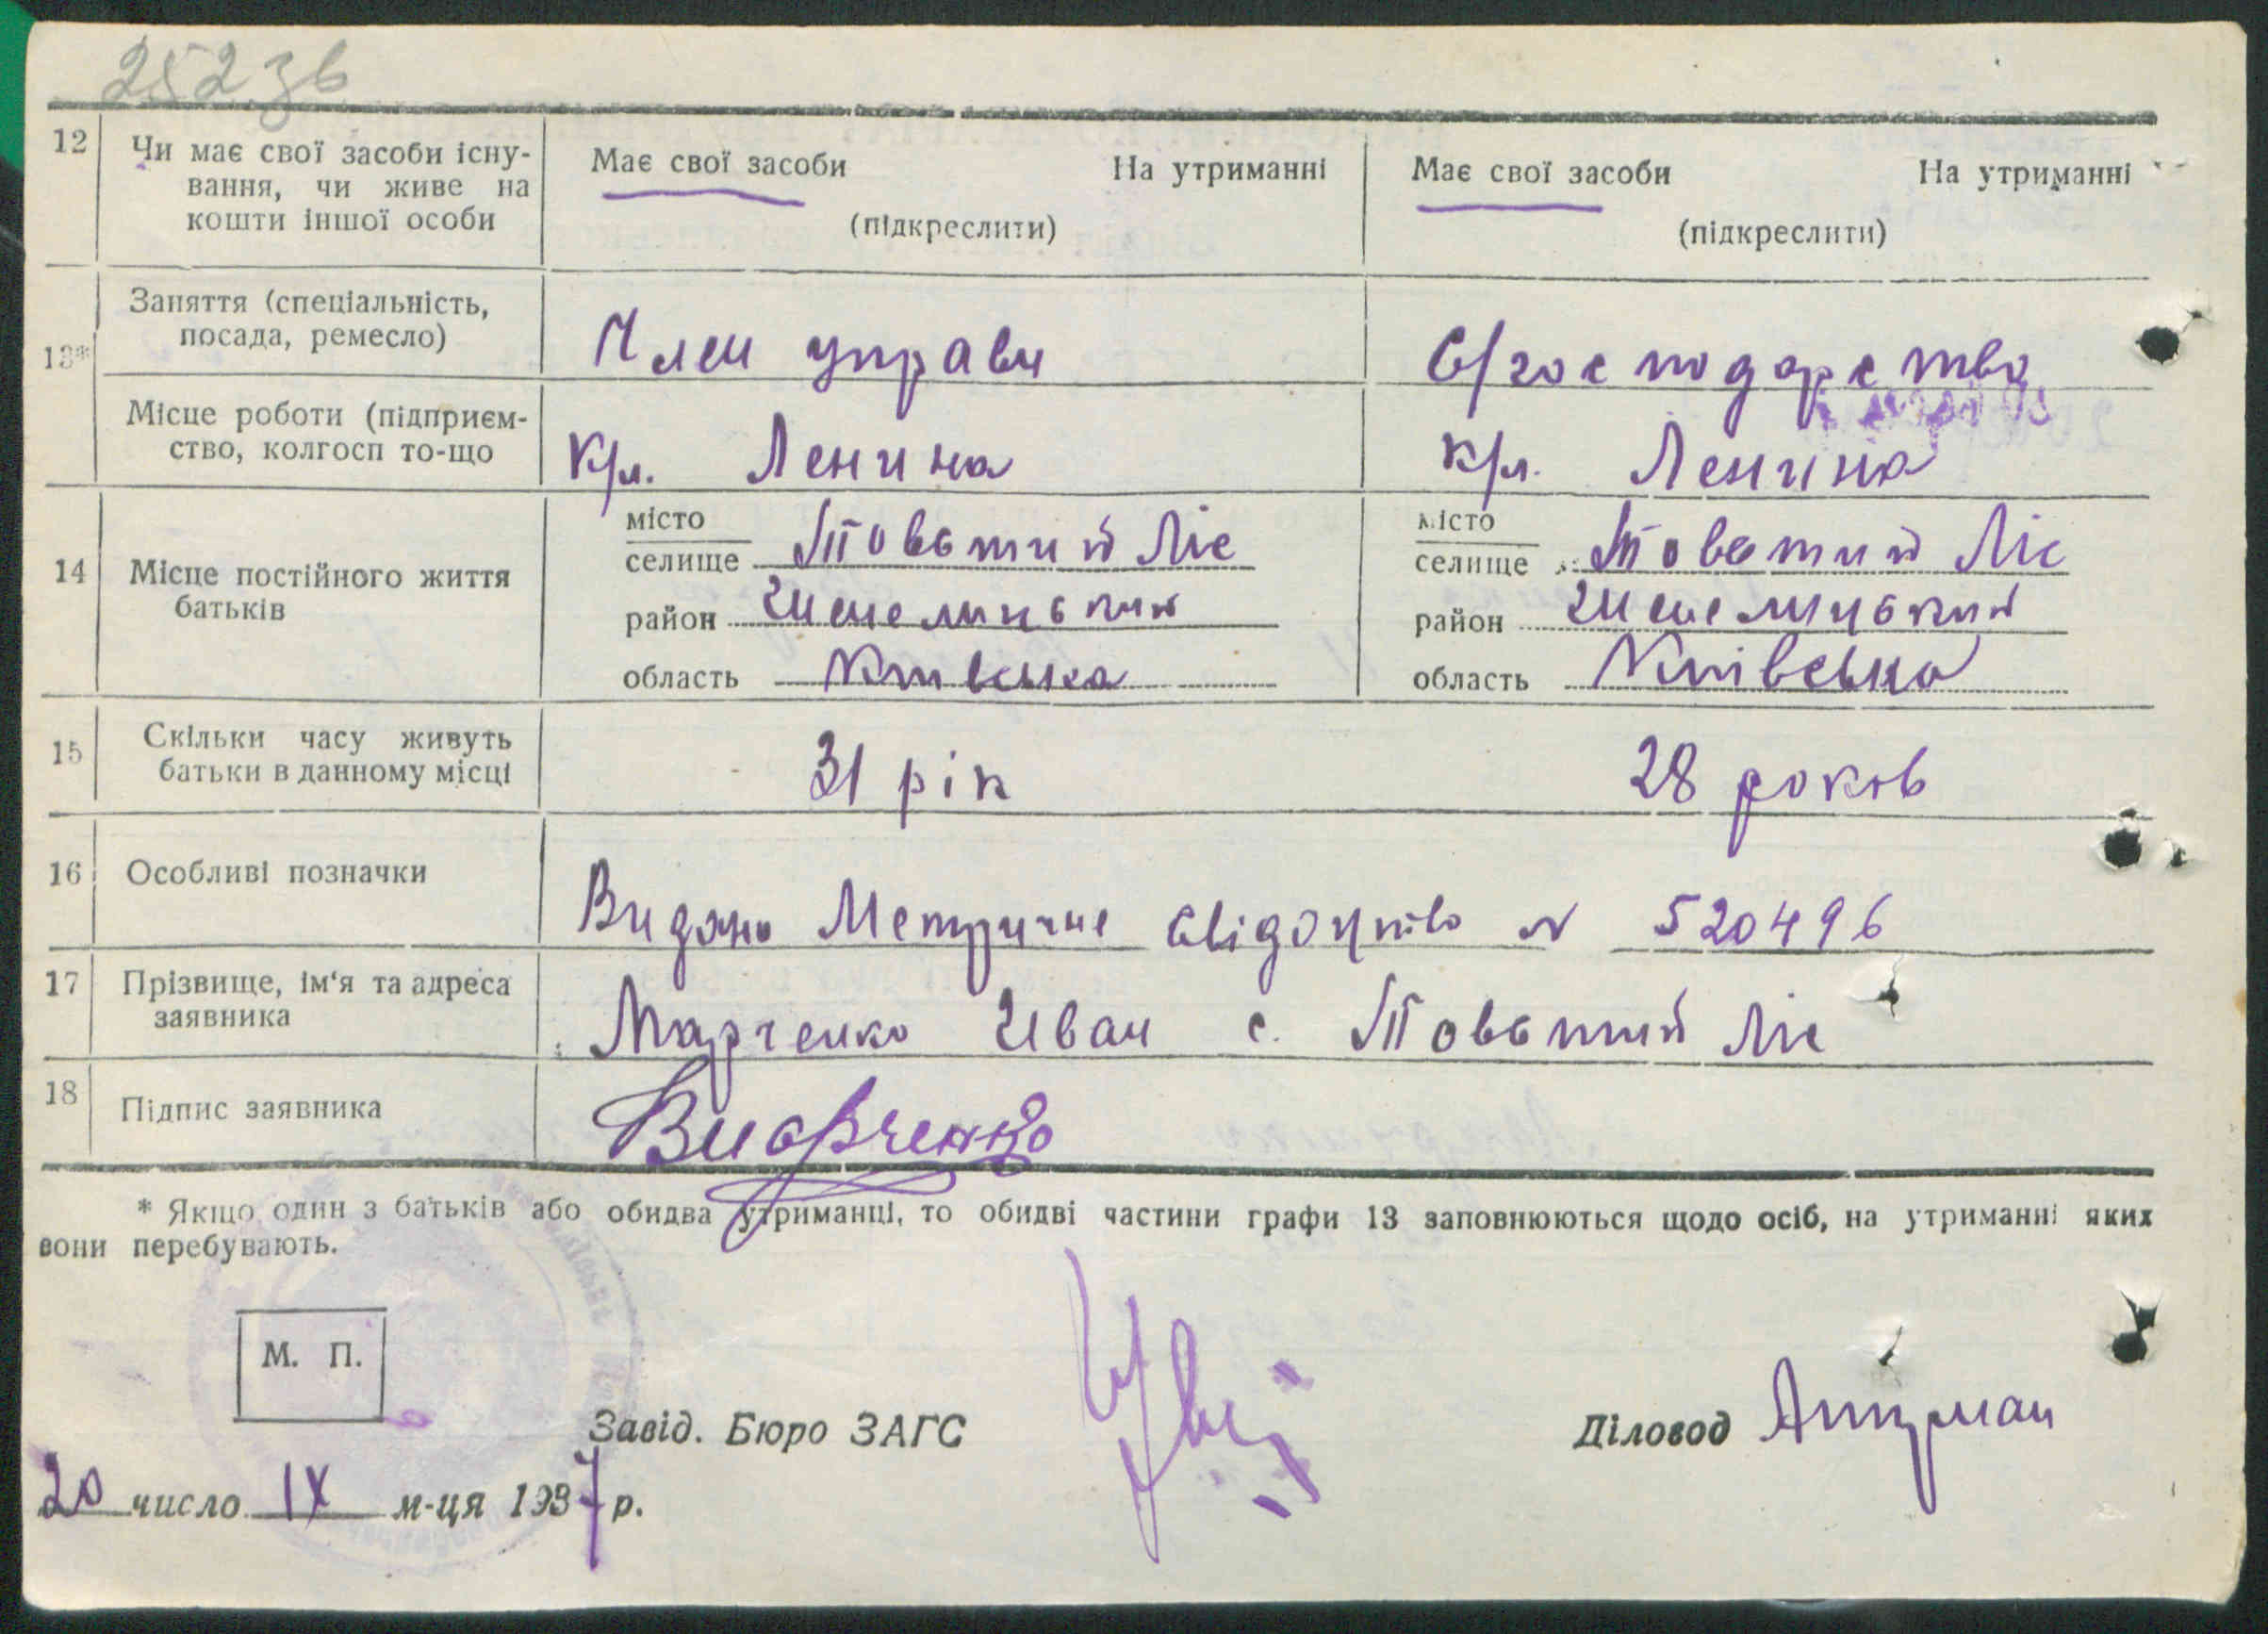 252 зв
12 Чи має свої засоби існу-
вання, чи живе на
кошти іншої особи
Має свої засоби На утриманні
(підкреслити)
Має свої засоби На утриманні
(підкреслити)
13* Заняття (спеціальність,
посада, ремесло)
Член управи
С/господарство
Місце роботи (підприєм-
ство, колгосп то-що
К/л. Ленина
к/л. Ленина
14 Місце постійного життя
батьків
місто
селище Товстий Ліс
район Шепелицький
область Київська
місто
селище Товстий Ліс
район Шепелицький
область Київська
15 Скільки часу живуть
батьки в данному місці
31 рік
28 років
16 Особливі позначки
Видано Метричне свідоцтво N 520496
17 Прізвище, ім'я та адреса
заявника
Марченко Иван с. Товстий Ліс
18 Підпис заявника
* Якщо один з батьків або обидва утриманці, то обидві частини графи 13 заповнюються щодо осіб, на утриманні яких
вони перебувають.
М. П.
Завід. Бюро ЗАГС
Діловод
20 число IX м-ця 1937 р.